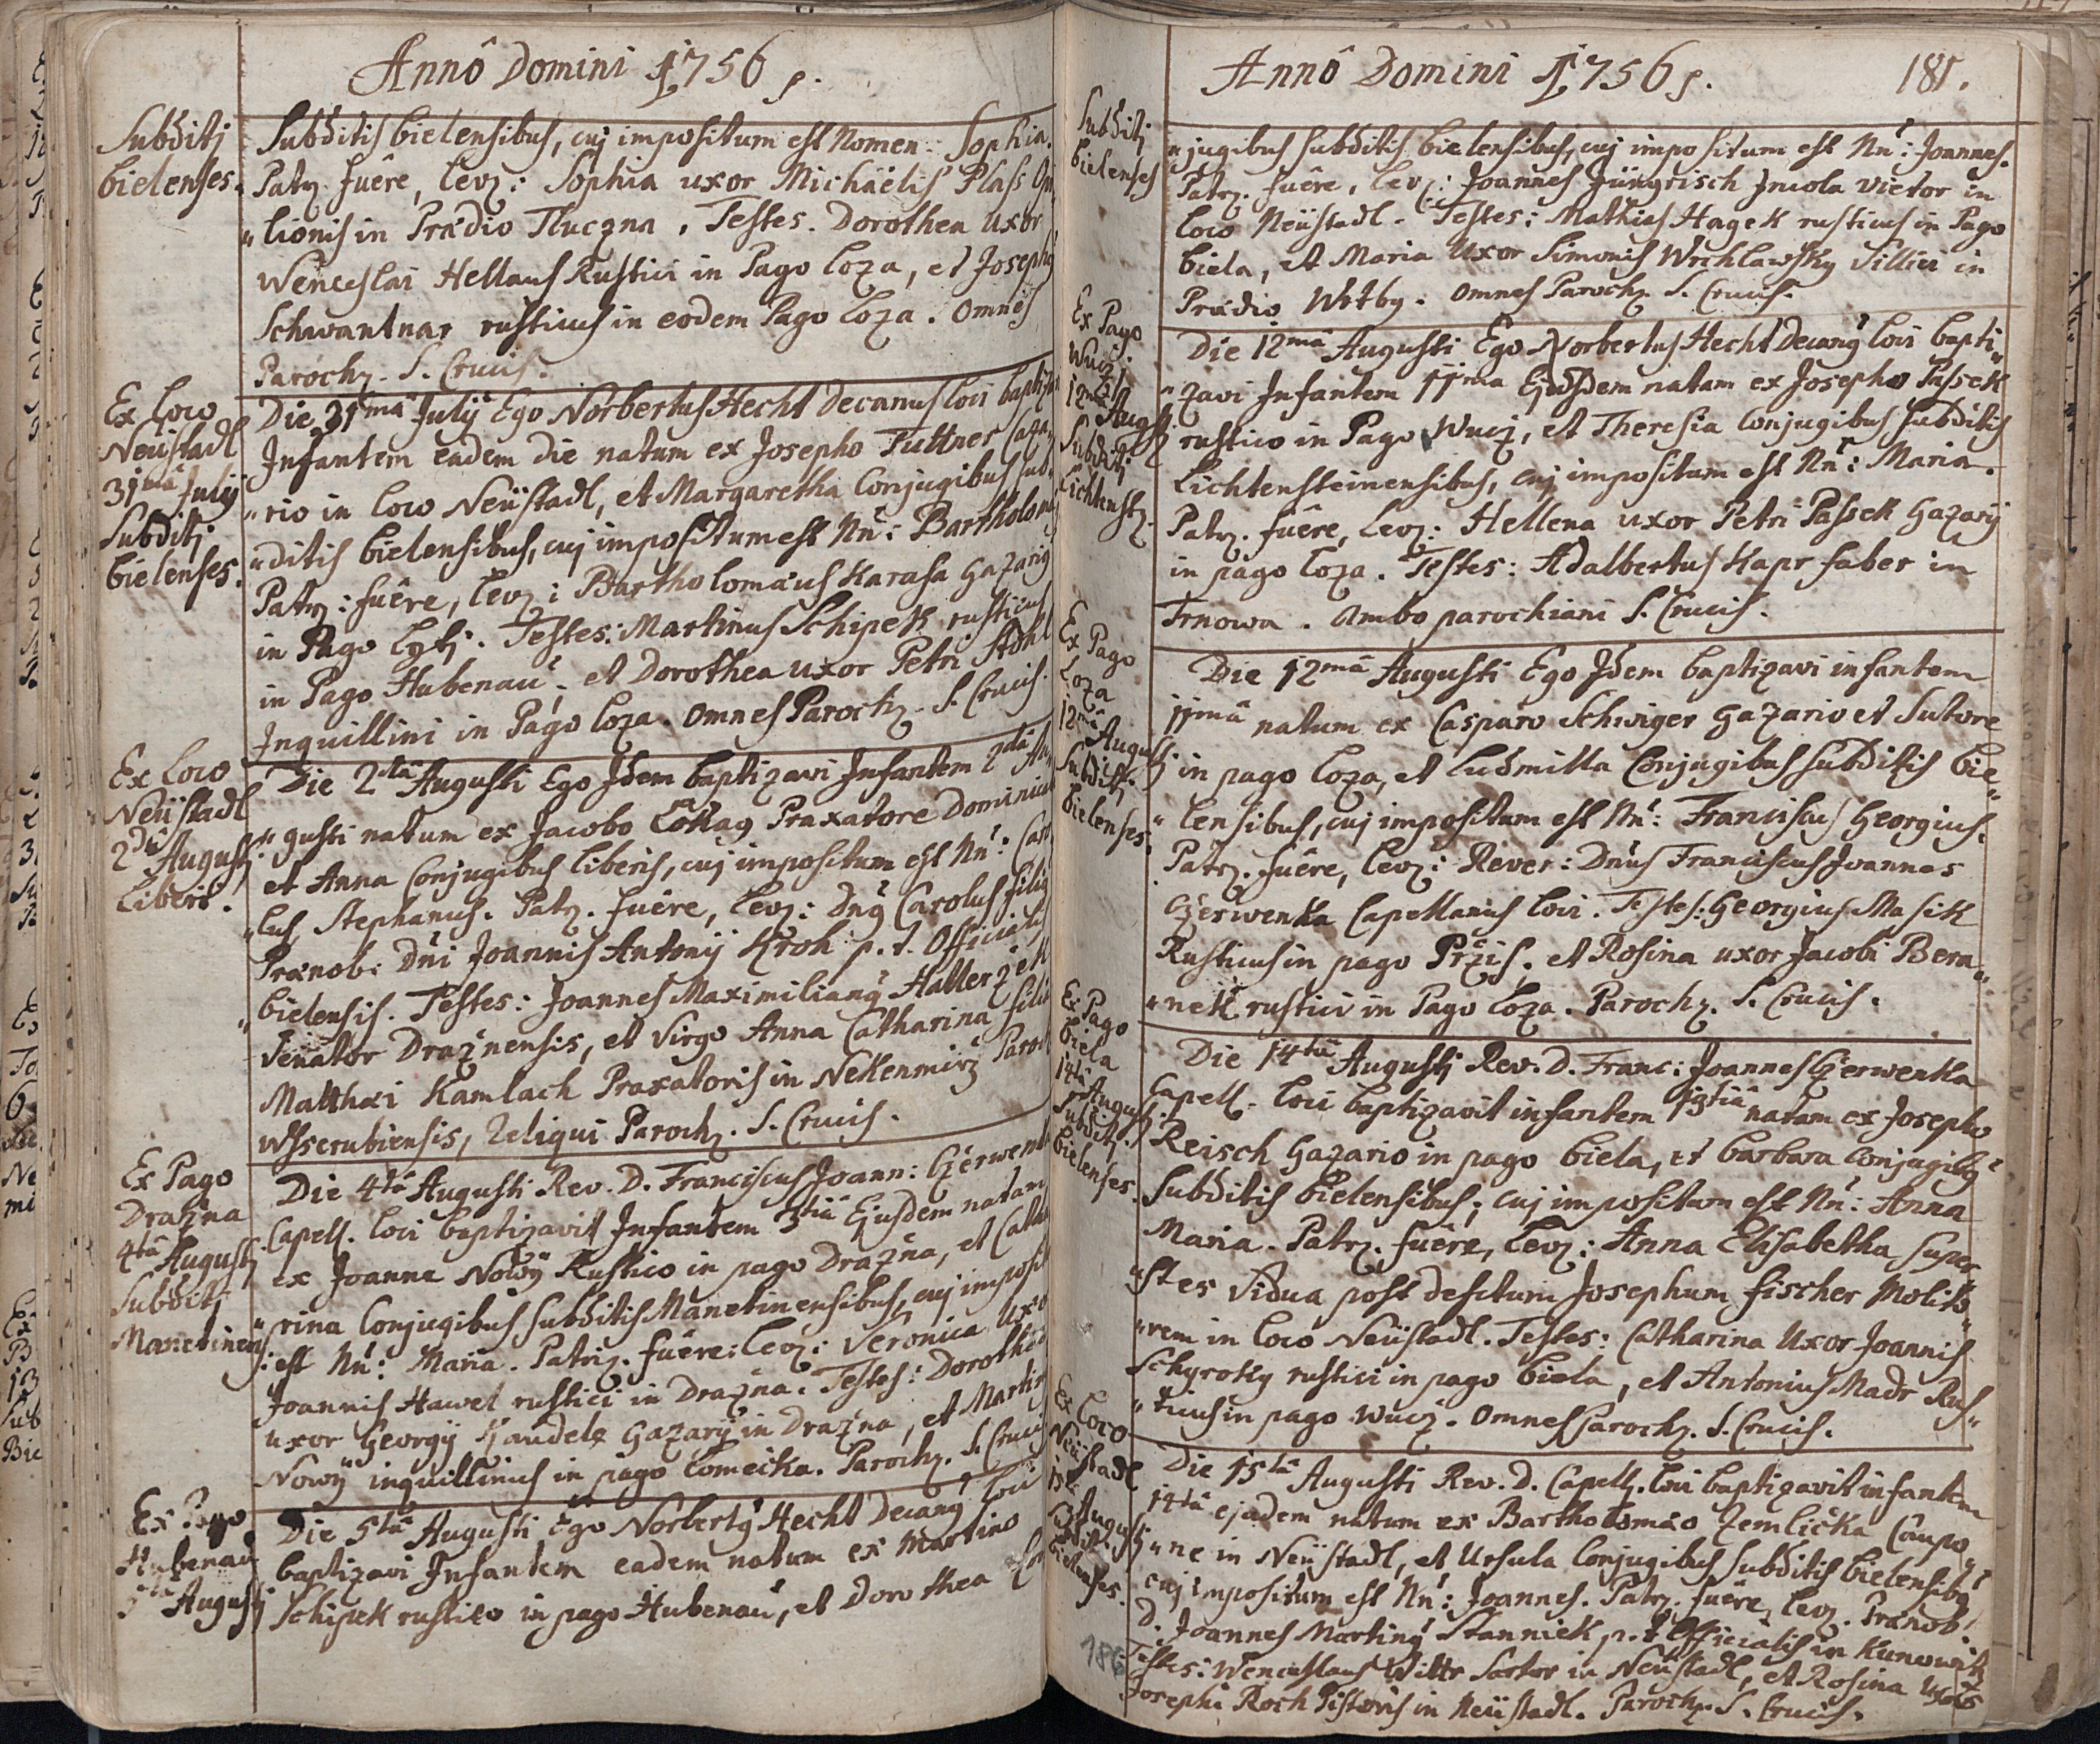 Annô Domini 1756
Subditj
bielenses.
Subditis bielensibus, cuj impositum est Nomen: Sophia.
Patr. fuêre, lev: Sophia uxor Michäelis Plass Opi,
"lionis in Prædio Tluczna. Testes. Dorothea Uxor
Wenceslai Hellaus Rustici in Pago Loza, et Joseph
Schwantnar rusticus in eodem Pago Loza. Omnes
Paroch. S. Crucis.
Ex Loco
Neüstadl
31mâ Julÿ
Subditj
bielenses.
Die 31mâ Julÿ Ego Norbertus Hecht Decanus loci baptiza
Infantem eadem die natum ex Josepho Tuttner Caza,
"rio in loco Neüstadl, et Margaretha Conjugibus sub,
"ditis bielensibus, cuj impositum est Nn: Bartholom
Patr: fuêre, lev: Bartholomæus Karasa Gazari
in Pago Lytj. Testes: Martinus Schipek rusticus
in Pago Hubenau, et Dorothea uxor Petri
Inquillini in Pago Loza. Omnes Paroch. S. Crucis.
Ex Loco
Neüstadl
2dâ Augustj
Liberi.
Die 2dâ Augusti Ego Idem baptizavi Infantem 2dâ Au
"gusti natum ex Jacobo Praxatore Dominicali
et Anna Conjugibus liberis, cuj impositum est Nn: Caro
"lus Stephanus. Patr. fuêre, lev: Dn9 Carolus filius
Prænob: Dni Joannis Antonÿ Kroh p. t. Officialis
"bielensis. Testes: Joannes Maximilian9 Hallerzek
Venator Draznensis, et Virgo Anna Catharina filia
Matthæi Kamlach Praxatoris in Nekenmirz Paroch
Wsserubiensis, Reliqui Paroch. S. Crucis.
Ex Pago
Drazna
4tâ Augustj
Subditj
Manetinens:
Die 4tâ Augusti Rev. D. Franciscus Joann: Czerwenk
Capell. loci baptizavit Infantem 3tiâ Ejusdem natam
ex Joanne Nowÿ Rustico in pago Drazna, et Catha
"rina Conjugibus subditis Manetinensibus, cuj imposit
est Nn: Maria. Patr. fuêre: lev: Veronica Uxo
Joannis Hawel rustici in Drazna. Testes: Dorothea
uxor Georgÿ Gazarÿ in Drazna, et Martin
Nowÿ inquillinus in pago Lomeika. Paroch. S. Crucis
Ex Pago
Hubenau
5tâ Augustj
Die 5tâ Augusti Ego Norbert9 Hecht Decan9 loci
baptizavi Infantem eadem natum ex Martino
Schipek rustico in pago Hubenau, et Dorothea Con
Annô Domini 1756
181.
Subditj
bielenses
"njugibus subditis bielensibus, cuj impositum est Nn: Joannes.
Patr. fuêre, lev: Joannes Jüngrisch Incola Vietor in
loco Neüstadl. Testes: Mathias Hagek rusticus in Pago
biela, et Maria Uxor Simonis Wrchlawsky Villici in
Prædio Wrtby. Omnes Paroch. S. Crucis.
Ex Pago
Wucz
12mâ
Augustj
Subditj
Lichtenst.
Die 12mâ Augusti Ego Norbertus Hecht Decan9 loci bapti"
"zavi Infantem 11ma Ejusdem natam ex Josepho Passek
rustico in Pago Wucz, et Theresia Conjugibus subditis
Lichtensteinensibus, cuj impositum est Nn: Maria.
Patr. fuêre, lev: Hellena uxor Petri Passek Gazarÿ
in pago Loza. Testes: Adalbertus Kapr faber in
Trnowa. Ambo parochiani S. Crucis.
Ex Pago
Loza
12mâ
Augustj
Subditj
bielenses.
Die 12mâ Augusti Ego Idem baptizavi infantem
11mâ natum ex Casparo Schwiger Gazario et Sutore
in pago Loza, et Ludmilla Conjugibus subditis bie"
"lensibus, cuj impositum est Nn: Franciscus Georgius.
Patr. fuêre, lev: Rever: Dnus Franciscus Joannes
Czerwenka Capellanus loci. Testes: Georgius Masik
Rusticus in pago Przis, et Rosina uxor Jacobi Bera"
"nek rustici in Pago Loza. Paroch. S. Crucis.
Ex Pago
biela
14tâ
Augustj
Subditj
bielenses.
Die 14tâ Augustj Rev. D. Franc: Joannes Czerwenka
Capell. loci baptizavit infantem 13tiâ natam ex Josepho
Reisch Gazario in pago biela, et barbara Conjugib9
subditis bielensibus, cuj impositum est Nn: Anna
Maria. Patr. fuêre, lev: Anna Elisabetha super
"stes Vidua post defctum Josephum fischer Molito"
"rem in loco Neüstadl. Testes: Catharina Uxor Joannis
Schyroky rustici in pago biela, et Antonius Madr Rus"
"ticus in pago Wucz. Omnes Paroch. S. Crucis.
Ex Loco
Neüstadl
15tâ
Augustj
Subditj
bielenses.
Die 15tâ Augusti Rev. D. Capell. loci baptizavit infantem
14tâ ejusdem natum ex Bartholomæo Zemlicka Caupo"
"ne in Neüstadl, et Ursula Conjugibus subditis bielensib9
cuj impositum est Nn: Joannes. Patr. fuêre, lev. Prænob:
D. Joannes Martin9 Stanniek p. t. Officialis in Kunowitz
Testes: Wenceslaus Wittr Sartor in Neüstadl, et Rosina Uxor
Josephi Roch Pistoris in Neüstadl. Paroch. S. Crucis.
186